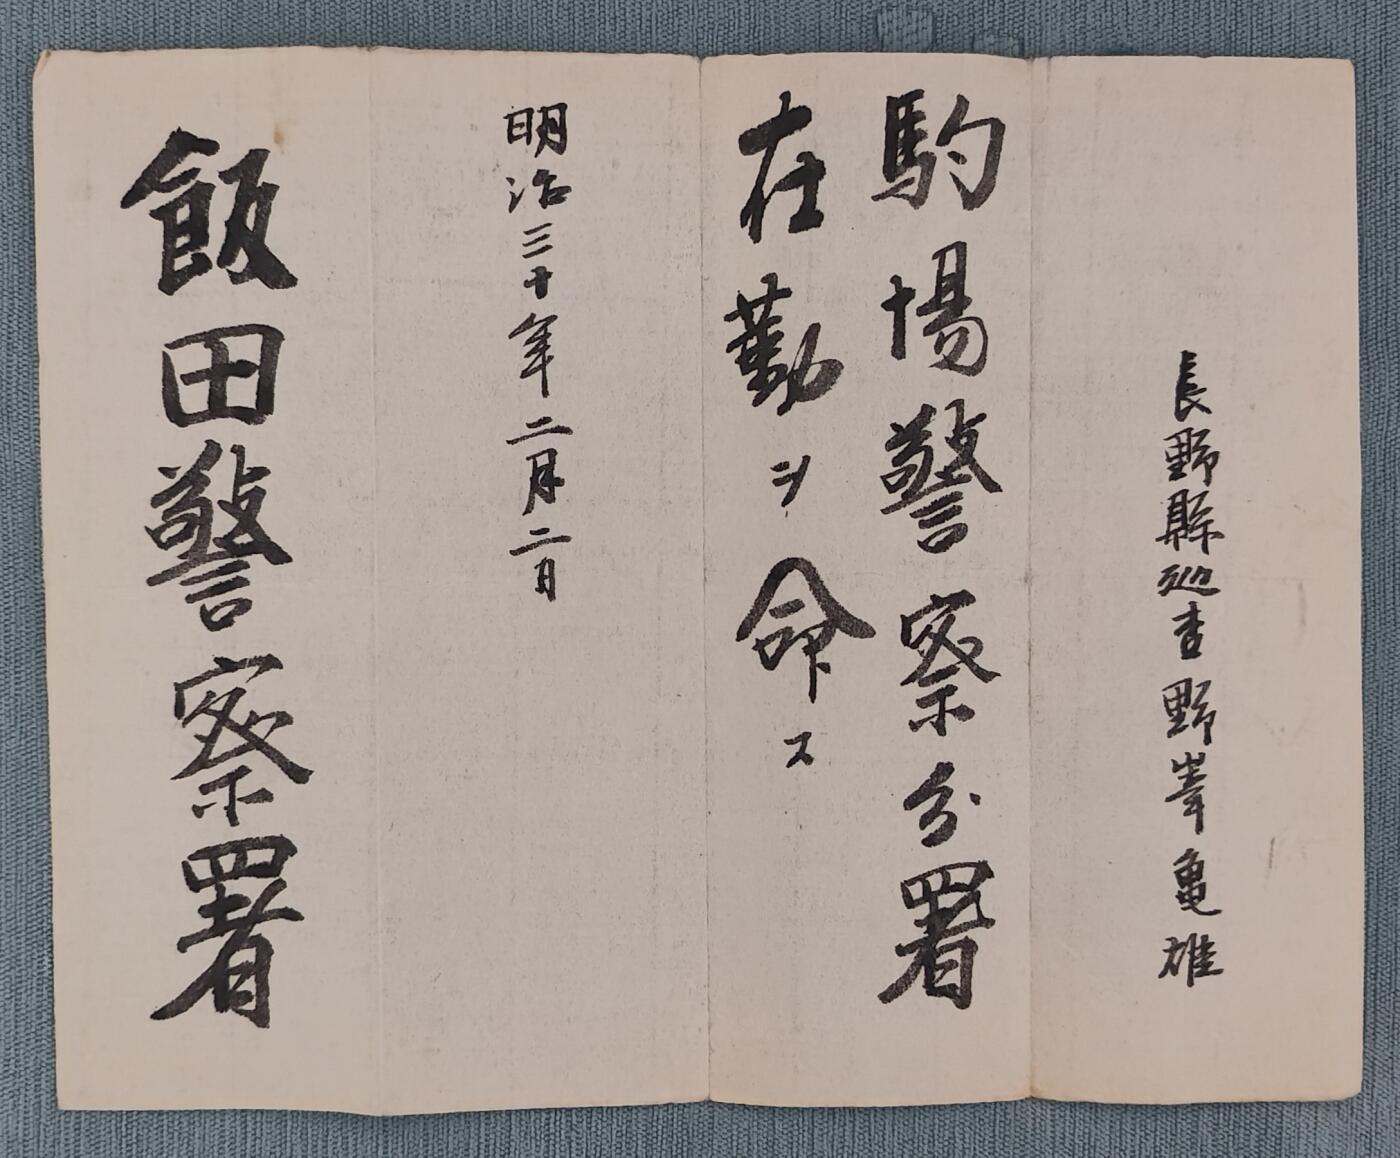 長野縣巡査野峯亀雄
駒場警察分署
在勤ヲ命ス
明治三十年二月二日
飯田警察署